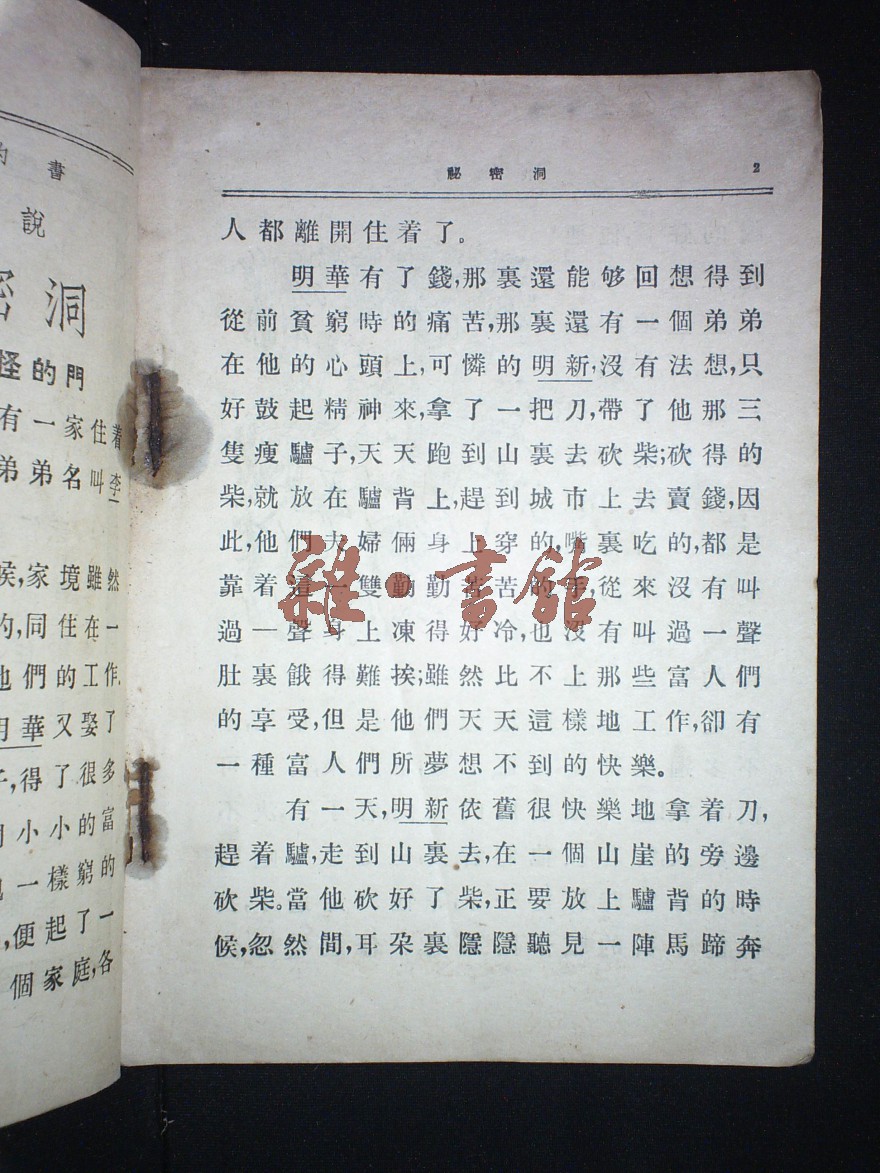 書
說
密洞
怪的門
有一家住着
弟弟名叫李
候,家境雖然
的,同住在一
他們的工作,
明華又娶了
子,得了很多
小小的富
一樣窮的
,便起了一
個家庭,各
祕密洞 2
人都離開住着了。
明華有了錢,那裏還能够回想得到
從前貧窮時的痛苦,那裏還有一個弟弟
在他的心頭上,可憐的明新,沒有法想,只
好鼓起精神來,拿了一把刀,帶了他那三
隻瘦驢子,天天跑到山裏去砍柴;砍得的
柴,就放在驢背上,趕到城市上去賣錢,因
此,他們夫婦倆身上穿的,嘴裏吃的,都是
靠着這一雙勤勤苦苦的手,從來沒有叫
過一聲身上凍得好冷,也沒有叫過一聲
肚裏餓得難挨;雖然比不上那些富人們
的享受,但是他們天天這樣地工作,卻有
一種富人們所夢想不到的快樂。
有一天,明新依舊很快樂地拿着刀,
趕着驢,走到山裏去,在一個山崖的旁邊
砍柴。當他砍好了柴,正要放上驢背的時
候,忽然間,耳朶裏隱隱聽見一陣馬蹄奔
雜·書館